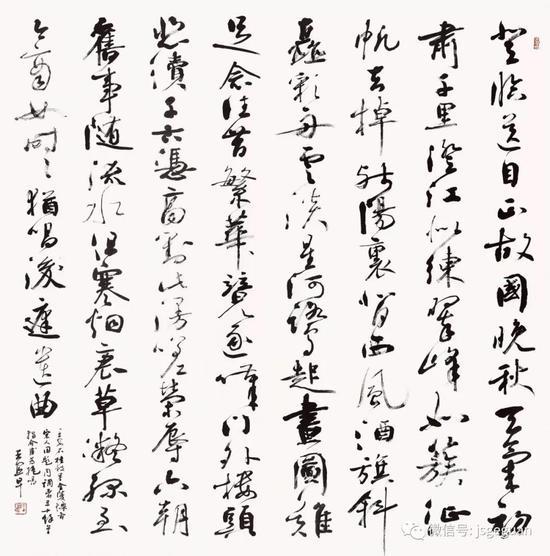 登臨送目正故國晚秋天氣初
肅千里澄江似練翠峰如簇征
帆去棹殘陽裏背西風酒旗斜
矗彩舟雲淡星河鷺起畫圖難
足念往昔繁華競逐嘆門外樓頭
悲續千古憑高對此漫嗟榮辱六朝
舊事隨流水但寒烟衰草凝綠至
今商女時々猶唱後庭遺曲
王安石桂枝香金陵懷古
微信号: jsgeguan